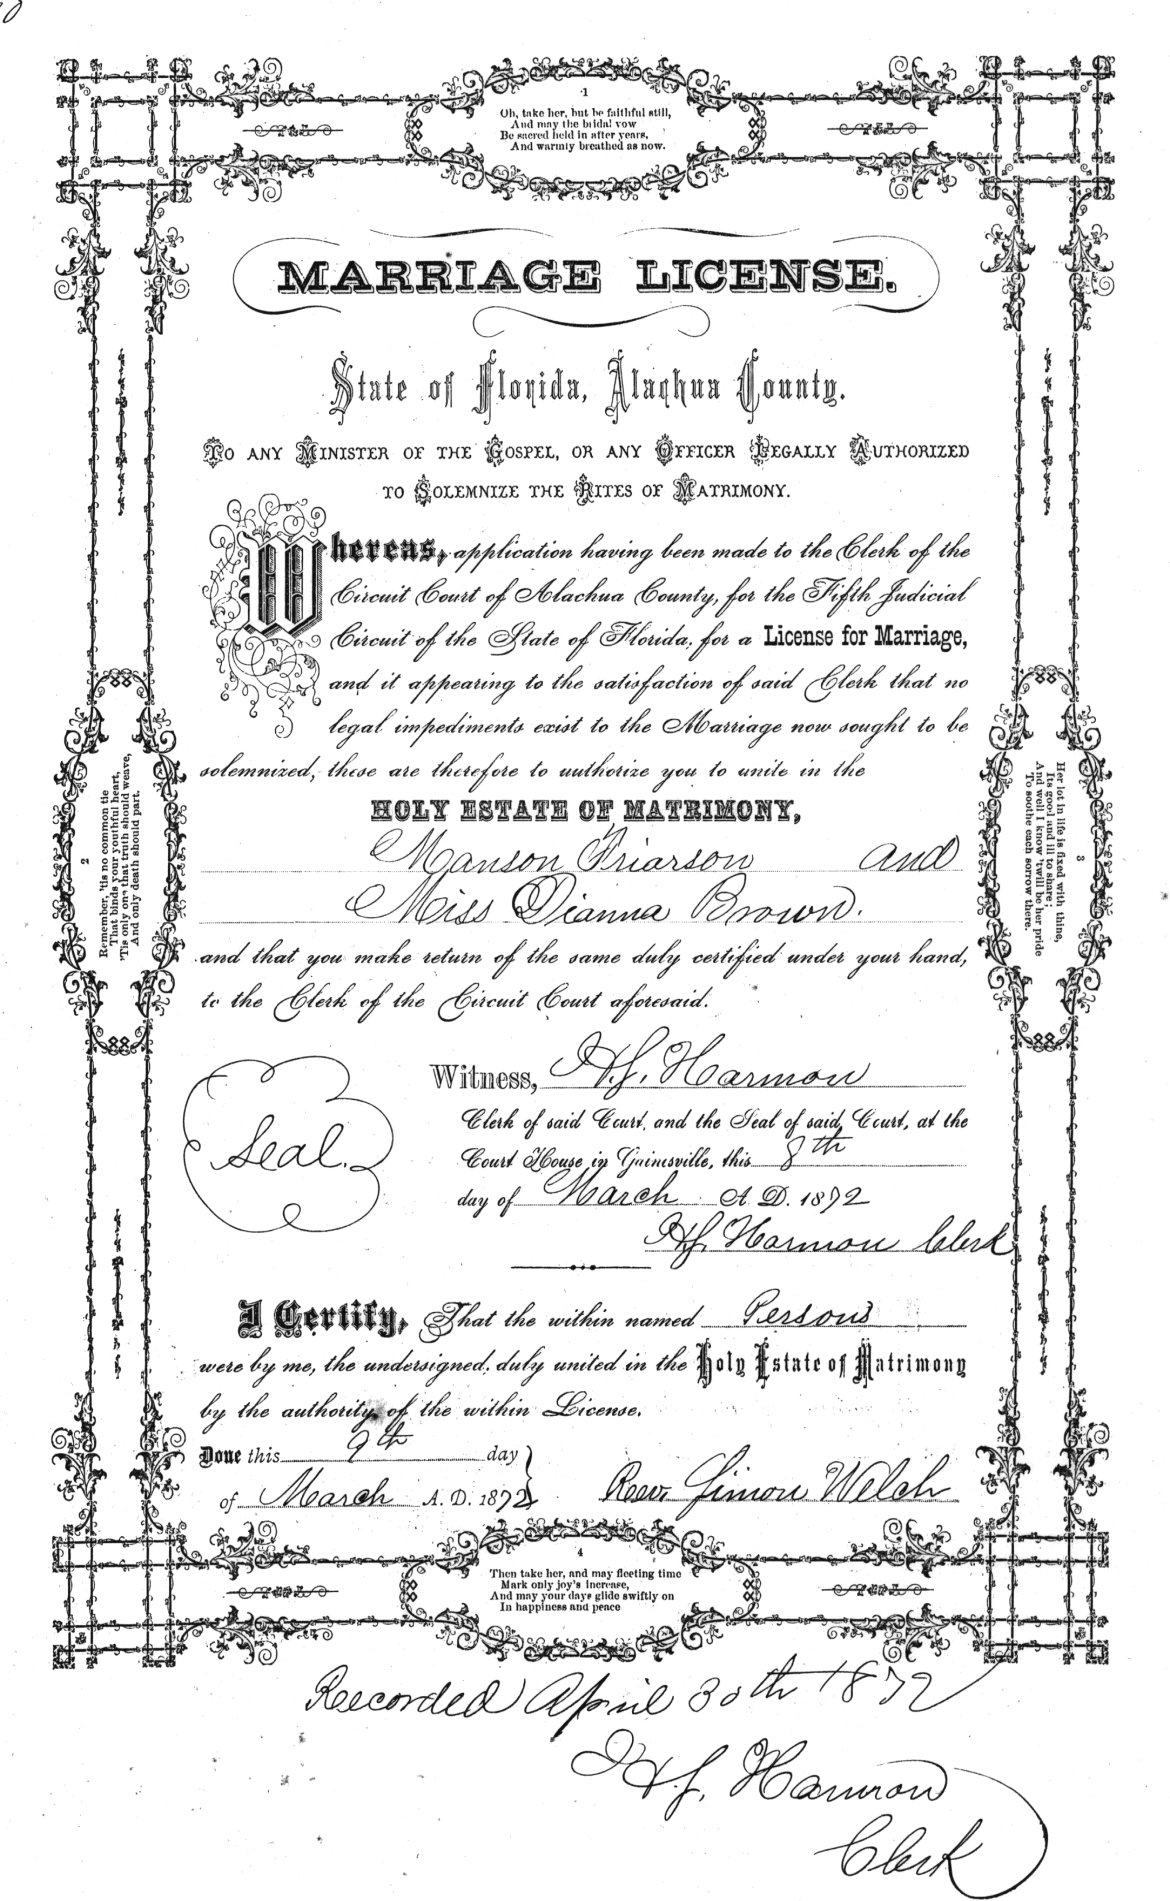 1
Oh, take her, but be faithful still,
And may the bridal vow
Be sacred held in after years,
And warmly breathed as now.
MARRIAGE LICENSE.
State of Florida, Alachua County.
TO ANY MINISTER OF THE GOSPEL, OR ANY OFFICER LEGALLY AUTHORIZED
TO SOLEMNIZE THE RITES OF MATRIMONY.
Whereas, application having been made to the Clerk of the
Circuit Court of Alachua County, for the Fifth Judicial
Circuit of the State of Florida, for a License for Marriage,
and it appearing to the satisfaction of said Clerk that no
legal impediments exist to the Marriage now sought to be
solemnized, these are therefore to authorize you to unite in the
HOLY ESTATE OF MATRIMONY,
Manson Friarson and
Miss Dianna Brown.
and that you make return of the same duly certified under your hand,
to the Clerk of the Circuit Court aforesaid.
2
Remember, 'tis no common tie
That binds your youthful heart,
'Tis only one that truth should weave,
And only death should part.
3
Her lot in life is fixed with thine,
Its good and ill to share;
And well I know 'twill be her pride
To soothe each sorrow there.
Seal.
Witness, H.S. Harmon
Clerk of said Court, and the Seal of said Court, at the
Court House in Gainesville, this 8th
day of March A. D. 1872
H.S. Harmon Clerk
I Certify, That the within named Persons
were by me, the undersigned, duly united in the Holy Estate of Matrimony
by the authority of the within License.
Done this 9th day
of March A. D. 1872
Rev. Simon Welch
4
Then take her, and may fleeting time
Mark only joy's increase,
And may your days glide swiftly on
In happiness and peace
Recorded April 30th 1872
H.S. Harmon
Clerk